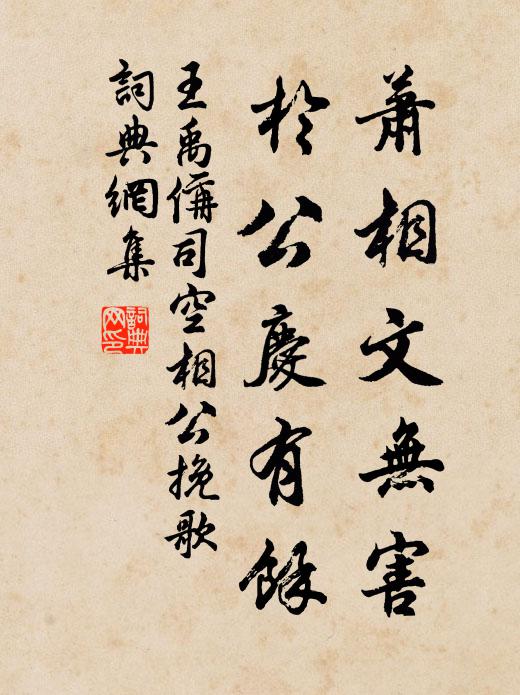 蕭相文無害
於公慶有餘
王禹偁司空相公挽歌
詞典網集
詞典
网印